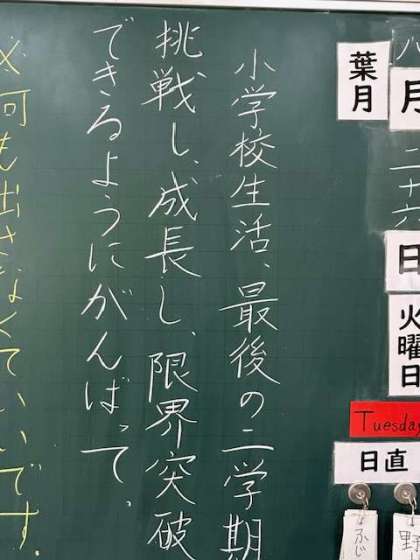 八
月
葉月
二十六
日
火曜日
Tuesday
日直
小学校生活、最後の二学期
挑戦し、成長し、限界突破
できるようにがんばって、
※何も出さなくていいです。